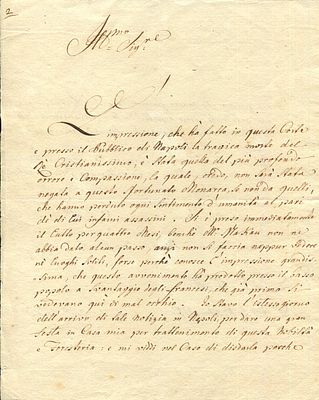 2
Ill.mo Sig.re
L'impressione, che hà fatto in questa Corte
e presso il Pubblico di Napoli la tragica morte del
Rè Cristianissimo, è stata quella del più profondo
orrore e Compassione, la quale, credo, non sarà stata
negata a questo sfortunato Monarca, se non da quelli,
che hanno perduto ogni sentimento d'umanità al pari
di di lui infami assassini. Si è preso immediatamente
il Lutto per quattro Mesi, benchè Mr Makau non ne
abbia dato alcun passo, anzi non si faccia neppur vedere
ne' luoghi soliti, forse perchè conosce l'impressione grandis=
sima, che questo avvenimento hà prodotto presso il basso
popolo a svantaggio degli Francesi, che già prima si
vedevano qui di mal occhio. Io stavo l'istesso giorno
dell'arrivo di tale notizia in Napoli, per dare una gran
festa in Casa mia per trattenimento di questa Nobiltà
e Foresteria: e mi viddi nel Caso di disdirla perche